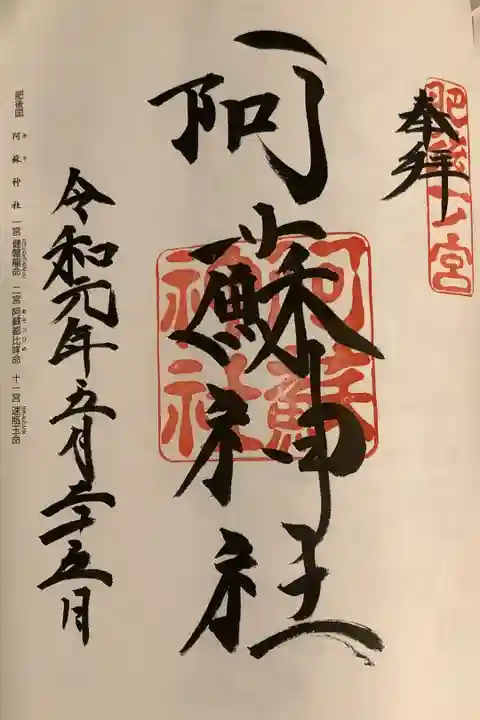 奉拝
肥後一宮
阿蘇神社
阿蘇神社
令和元年五月二十五日
肥後国 阿蘇神社 一宮 健磐龍命 二宮 阿蘇都比咩命 十一宮 速瓶玉命